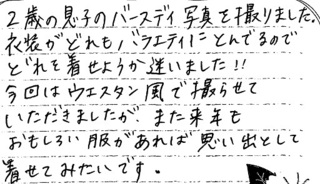 2歳の息子のバースディ写真を撮りました。
衣装がどれもバラエティにとんでるので
どれを着せようか迷いました!!
今回はウエスタン風で撮らせて
いただきましたが、また来年も
おもしろい服があれば思い出として
着せてみたいです。